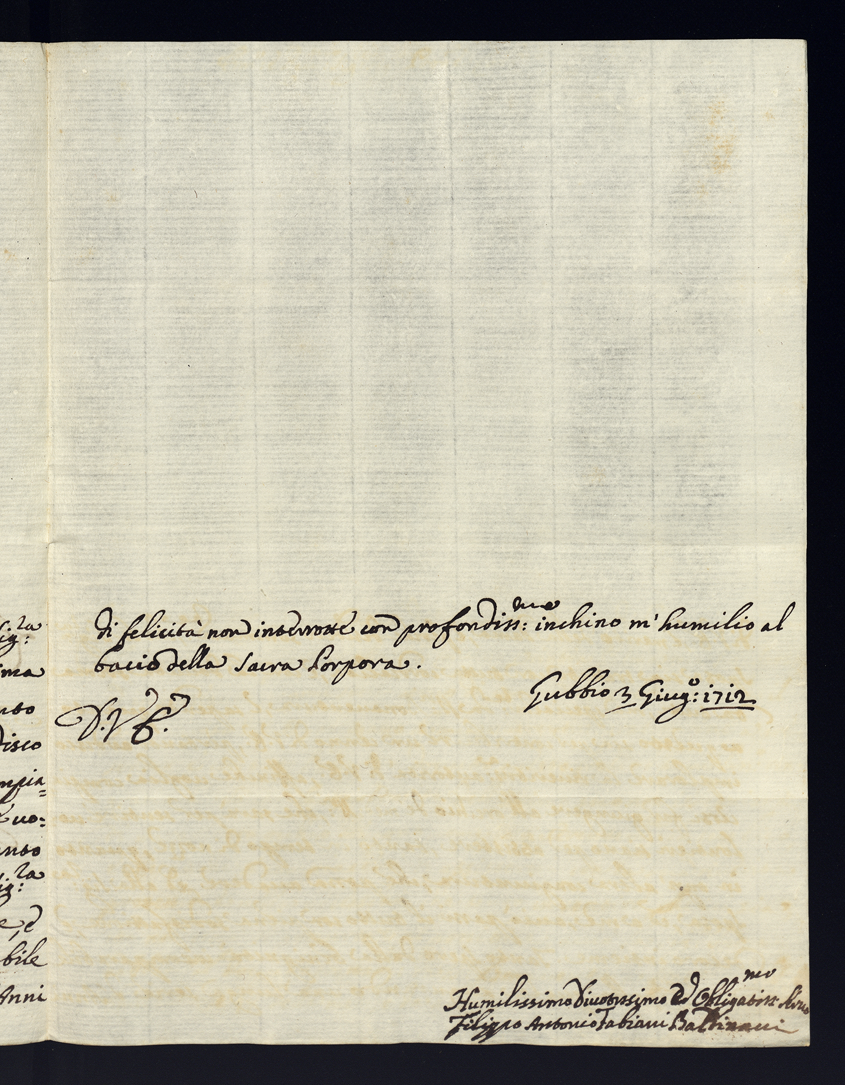 di felicità non interrotte con profondiss:mo inchino m'humilio al
bacio della Sacra Porpora.
Gubbio 3 Giug:o 1712
D. V. E.
Humilissimo Divotissimo ed Obligatiss:mo
Filippo Antonio Fabiani Baldinacci
ig:ra
ima
nto
disco
mpia=
uo:
anto
ig:ra
e, e
bile
Anni